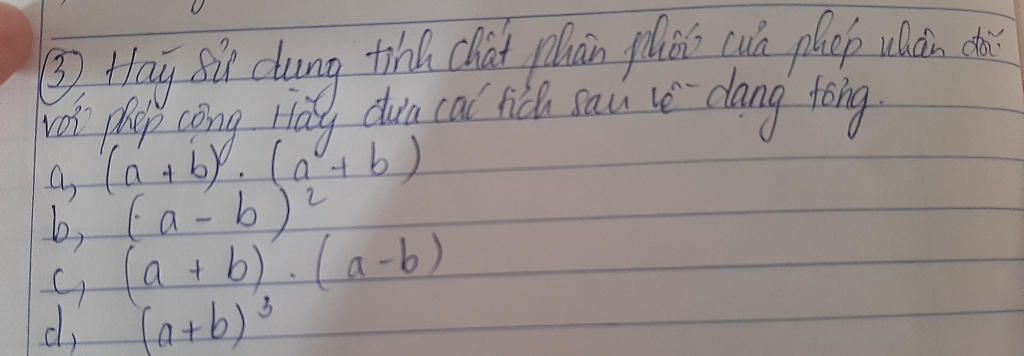 ③ Hãy sử dụng tính chất phân phối của phép nhân đối
với phép cộng. Hãy đưa các tích sau về dạng tổng.
a, (a + b) . (a + b)
b, (a - b)²
c, (a + b) . (a - b)
d, (a+b)³